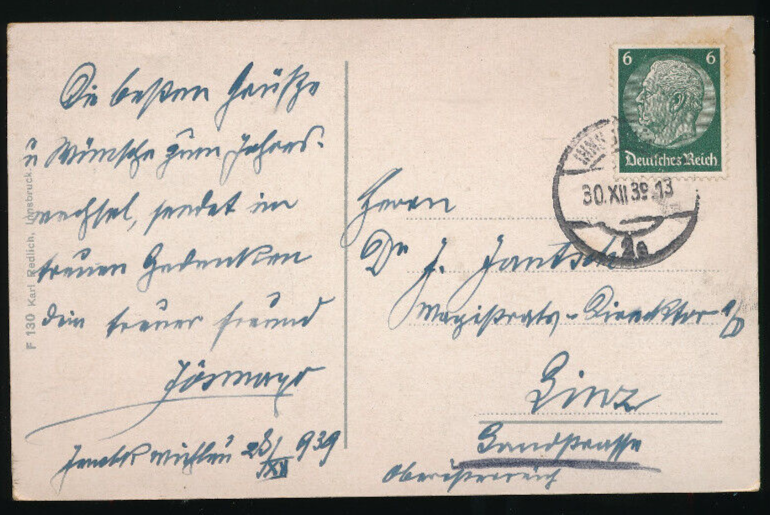 Die besten Grüße
u Wünsche zum Jahres-
wechsel, sendet in
treuem Gedenken
Dein treuer Freund
28/XII 939
F 130 Karl Redlich, Innsbruck.
6 6
Deutsches Reich
30.XII 39.13
2a
Herrn
Dr J. Jantsch
Magistrats-Direktor
Linz
Landstrasse
Oberösterreich